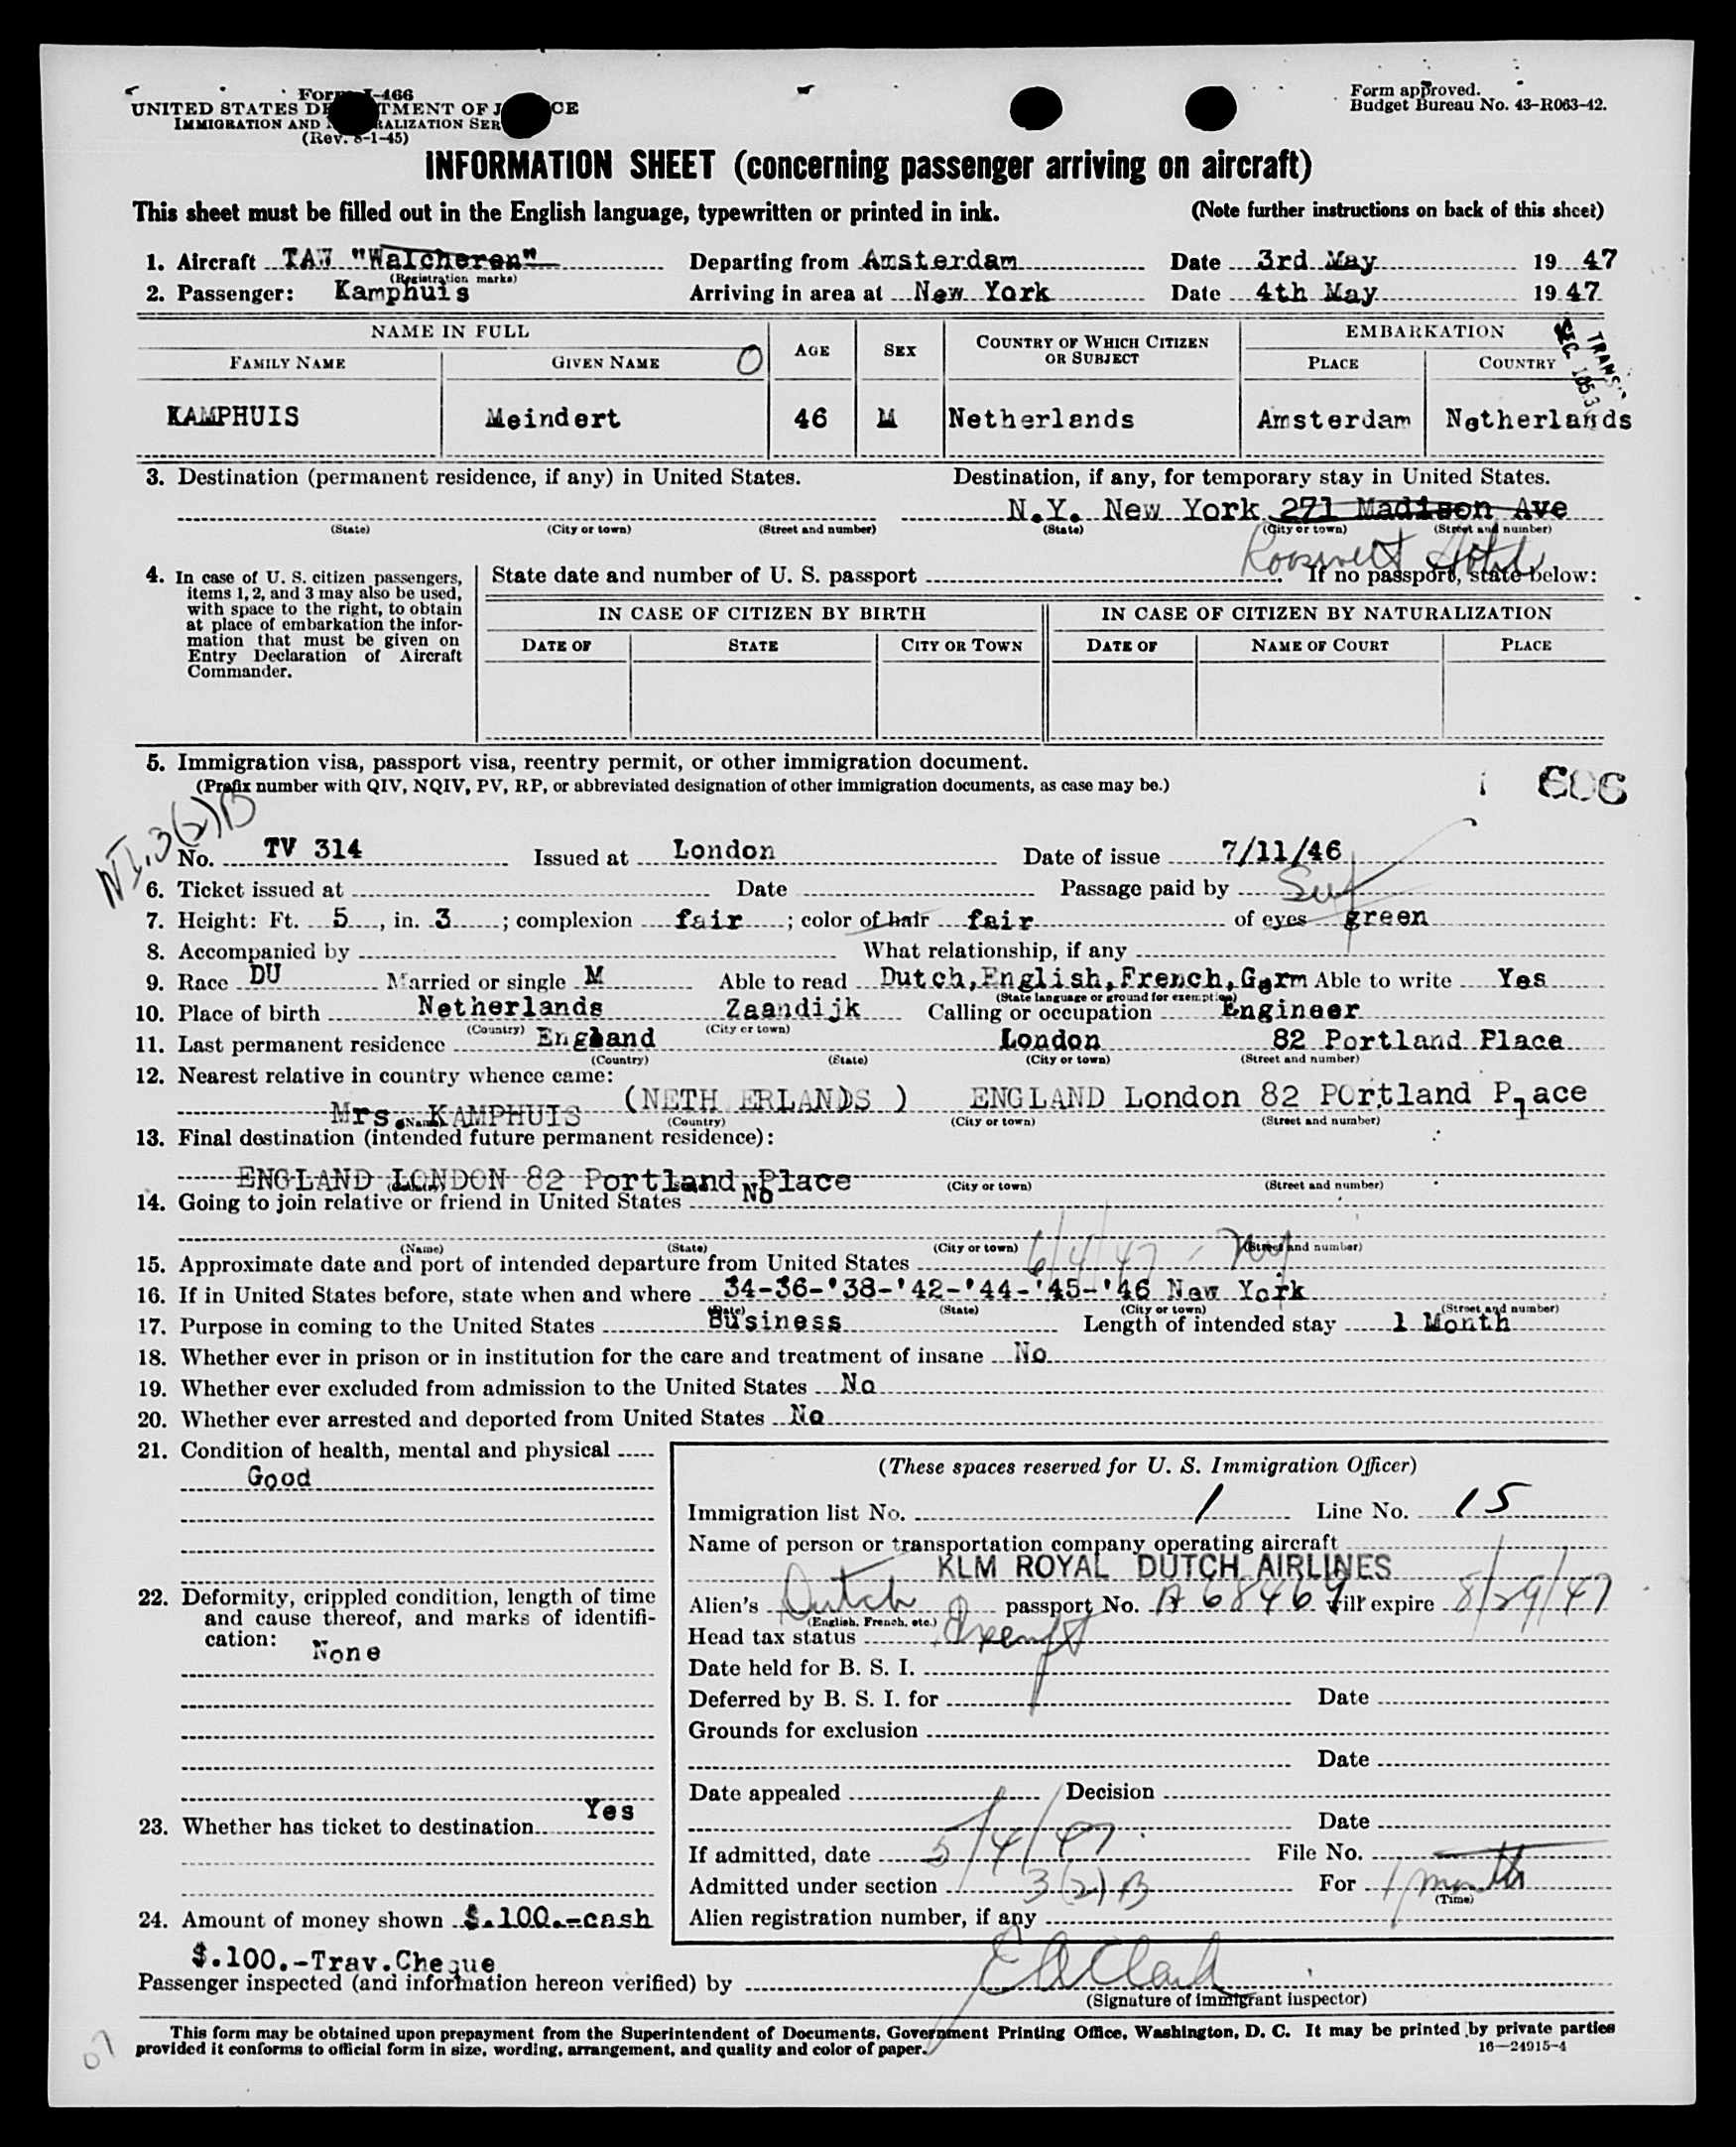 Form I-466
UNITED STATES DEPARTMENT OF JUSTICE
IMMIGRATION AND NATURALIZATION SER
(Rev. 8-1-45)
Form approved.
Budget Bureau No. 43-R063-42.
INFORMATION SHEET (concerning passenger arriving on aircraft)
This sheet must be filled out in the English language, typewritten or printed in ink. (Note further instructions on back of this sheet)
1. Aircraft TAW "Walcheren" Departing from Amsterdam Date 3rd May 1947
(Registration marks)
2. Passenger: Kamphuis Arriving in area at New York Date 4th May 1947
NAME IN FULL AGE SEX COUNTRY OF WHICH CITIZEN OR SUBJECT EMBARKATION
FAMILY NAME GIVEN NAME PLACE COUNTRY
TRANS.
SEC
KAMPHUIS Meindert 46 M Netherlands Amsterdam Netherlands
3. Destination (permanent residence, if any) in United States. Destination, if any, for temporary stay in United States.
N.Y. New York 271 Madison Ave
(State) (City or town) (Street and number) (State) (City or town) (Street and number)
Roosevelt Hotel
4. In case of U. S. citizen passengers, items 1, 2, and 3 may also be used, with space to the right, to obtain at place of embarkation the information that must be given on Entry Declaration of Aircraft Commander.
State date and number of U. S. passport If no passport, state below:
IN CASE OF CITIZEN BY BIRTH IN CASE OF CITIZEN BY NATURALIZATION
DATE OF STATE CITY OR TOWN DATE OF NAME OF COURT PLACE
5. Immigration visa, passport visa, reentry permit, or other immigration document.
(Prefix number with QIV, NQIV, PV, RP, or abbreviated designation of other immigration documents, as case may be.)
606
NI.3(2)B
No. TV 314 Issued at London Date of issue 7/11/46
6. Ticket issued at Date Passage paid by Self
7. Height: Ft. 5, in. 3; complexion fair; color of hair fair of eyes green
8. Accompanied by What relationship, if any
9. Race DU Married or single M Able to read Dutch,English,French,Germ Able to write Yes
(State language or ground for exemption)
10. Place of birth Netherlands Zaandijk Calling or occupation Engineer
(Country) (City or town)
11. Last permanent residence England London 82 Portland Place
(Country) (State) (City or town) (Street and number)
12. Nearest relative in country whence came:
Mrs. KAMPHUIS (NETHERLANDS) ENGLAND London 82 POrtland Place
(Name) (Country) (City or town) (Street and number)
13. Final destination (intended future permanent residence):
ENGLAND LONDON 82 Portland Place
(Country) (State) (City or town) (Street and number)
14. Going to join relative or friend in United States No
(Name) (State) (City or town) (Street and number)
15. Approximate date and port of intended departure from United States 6/4/47 - NY
16. If in United States before, state when and where 34-36-'38-'42-'44-'45-'46 New York
(Date) (State) (City or town) (Street and number)
17. Purpose in coming to the United States Business Length of intended stay 1 Month
18. Whether ever in prison or in institution for the care and treatment of insane No
19. Whether ever excluded from admission to the United States No
20. Whether ever arrested and deported from United States No
21. Condition of health, mental and physical
Good
22. Deformity, crippled condition, length of time and cause thereof, and marks of identification: None
23. Whether has ticket to destination Yes
24. Amount of money shown $.100.-cash
$.100.-Trav.Cheque
(These spaces reserved for U. S. Immigration Officer)
Immigration list No. 1 Line No. 15
Name of person or transportation company operating aircraft
KLM ROYAL DUTCH AIRLINES
Alien's Dutch passport No. A 68469 will expire 8/29/47
(English, French, etc.)
Head tax status Exempt
Date held for B. S. I.
Deferred by B. S. I. for Date
Grounds for exclusion
Date
Date appealed Decision
Date
If admitted, date 5/4/47 File No.
Admitted under section 3(2)B For 1 month
(Time)
Alien registration number, if any
Passenger inspected (and information hereon verified) by E A Clark
(Signature of immigrant inspector)
This form may be obtained upon prepayment from the Superintendent of Documents, Government Printing Office, Washington, D. C. It may be printed by private parties
provided it conforms to official form in size, wording, arrangement, and quality and color of paper.
16—24915-4